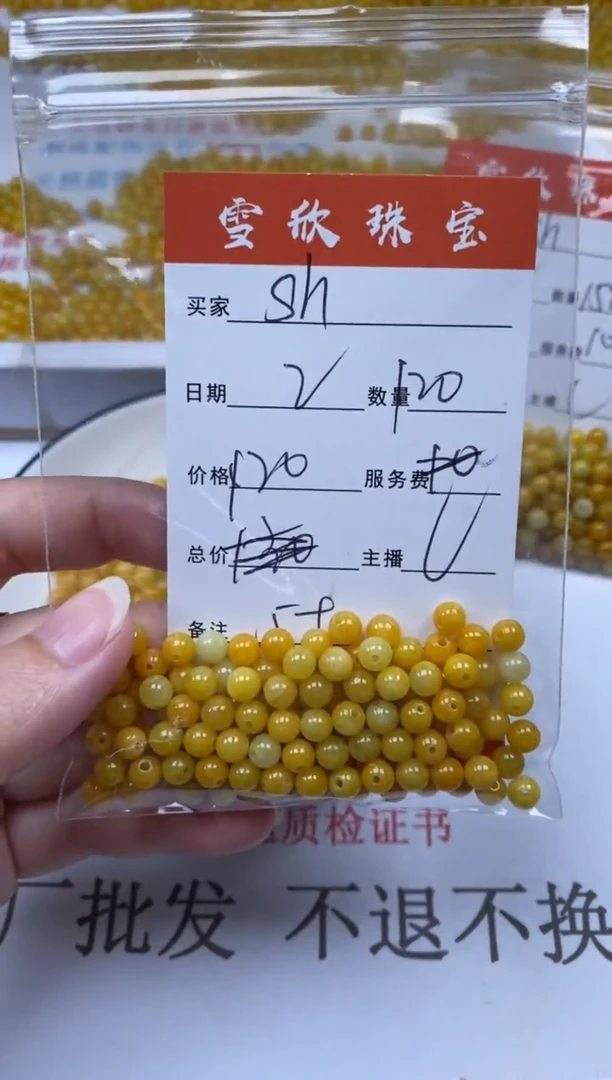 雪欣珠宝
买家 Sh
日期 2 数量 120
价格 120 服务费 10
总价 主播
备注 5+
质检证书
厂批发 不退不换